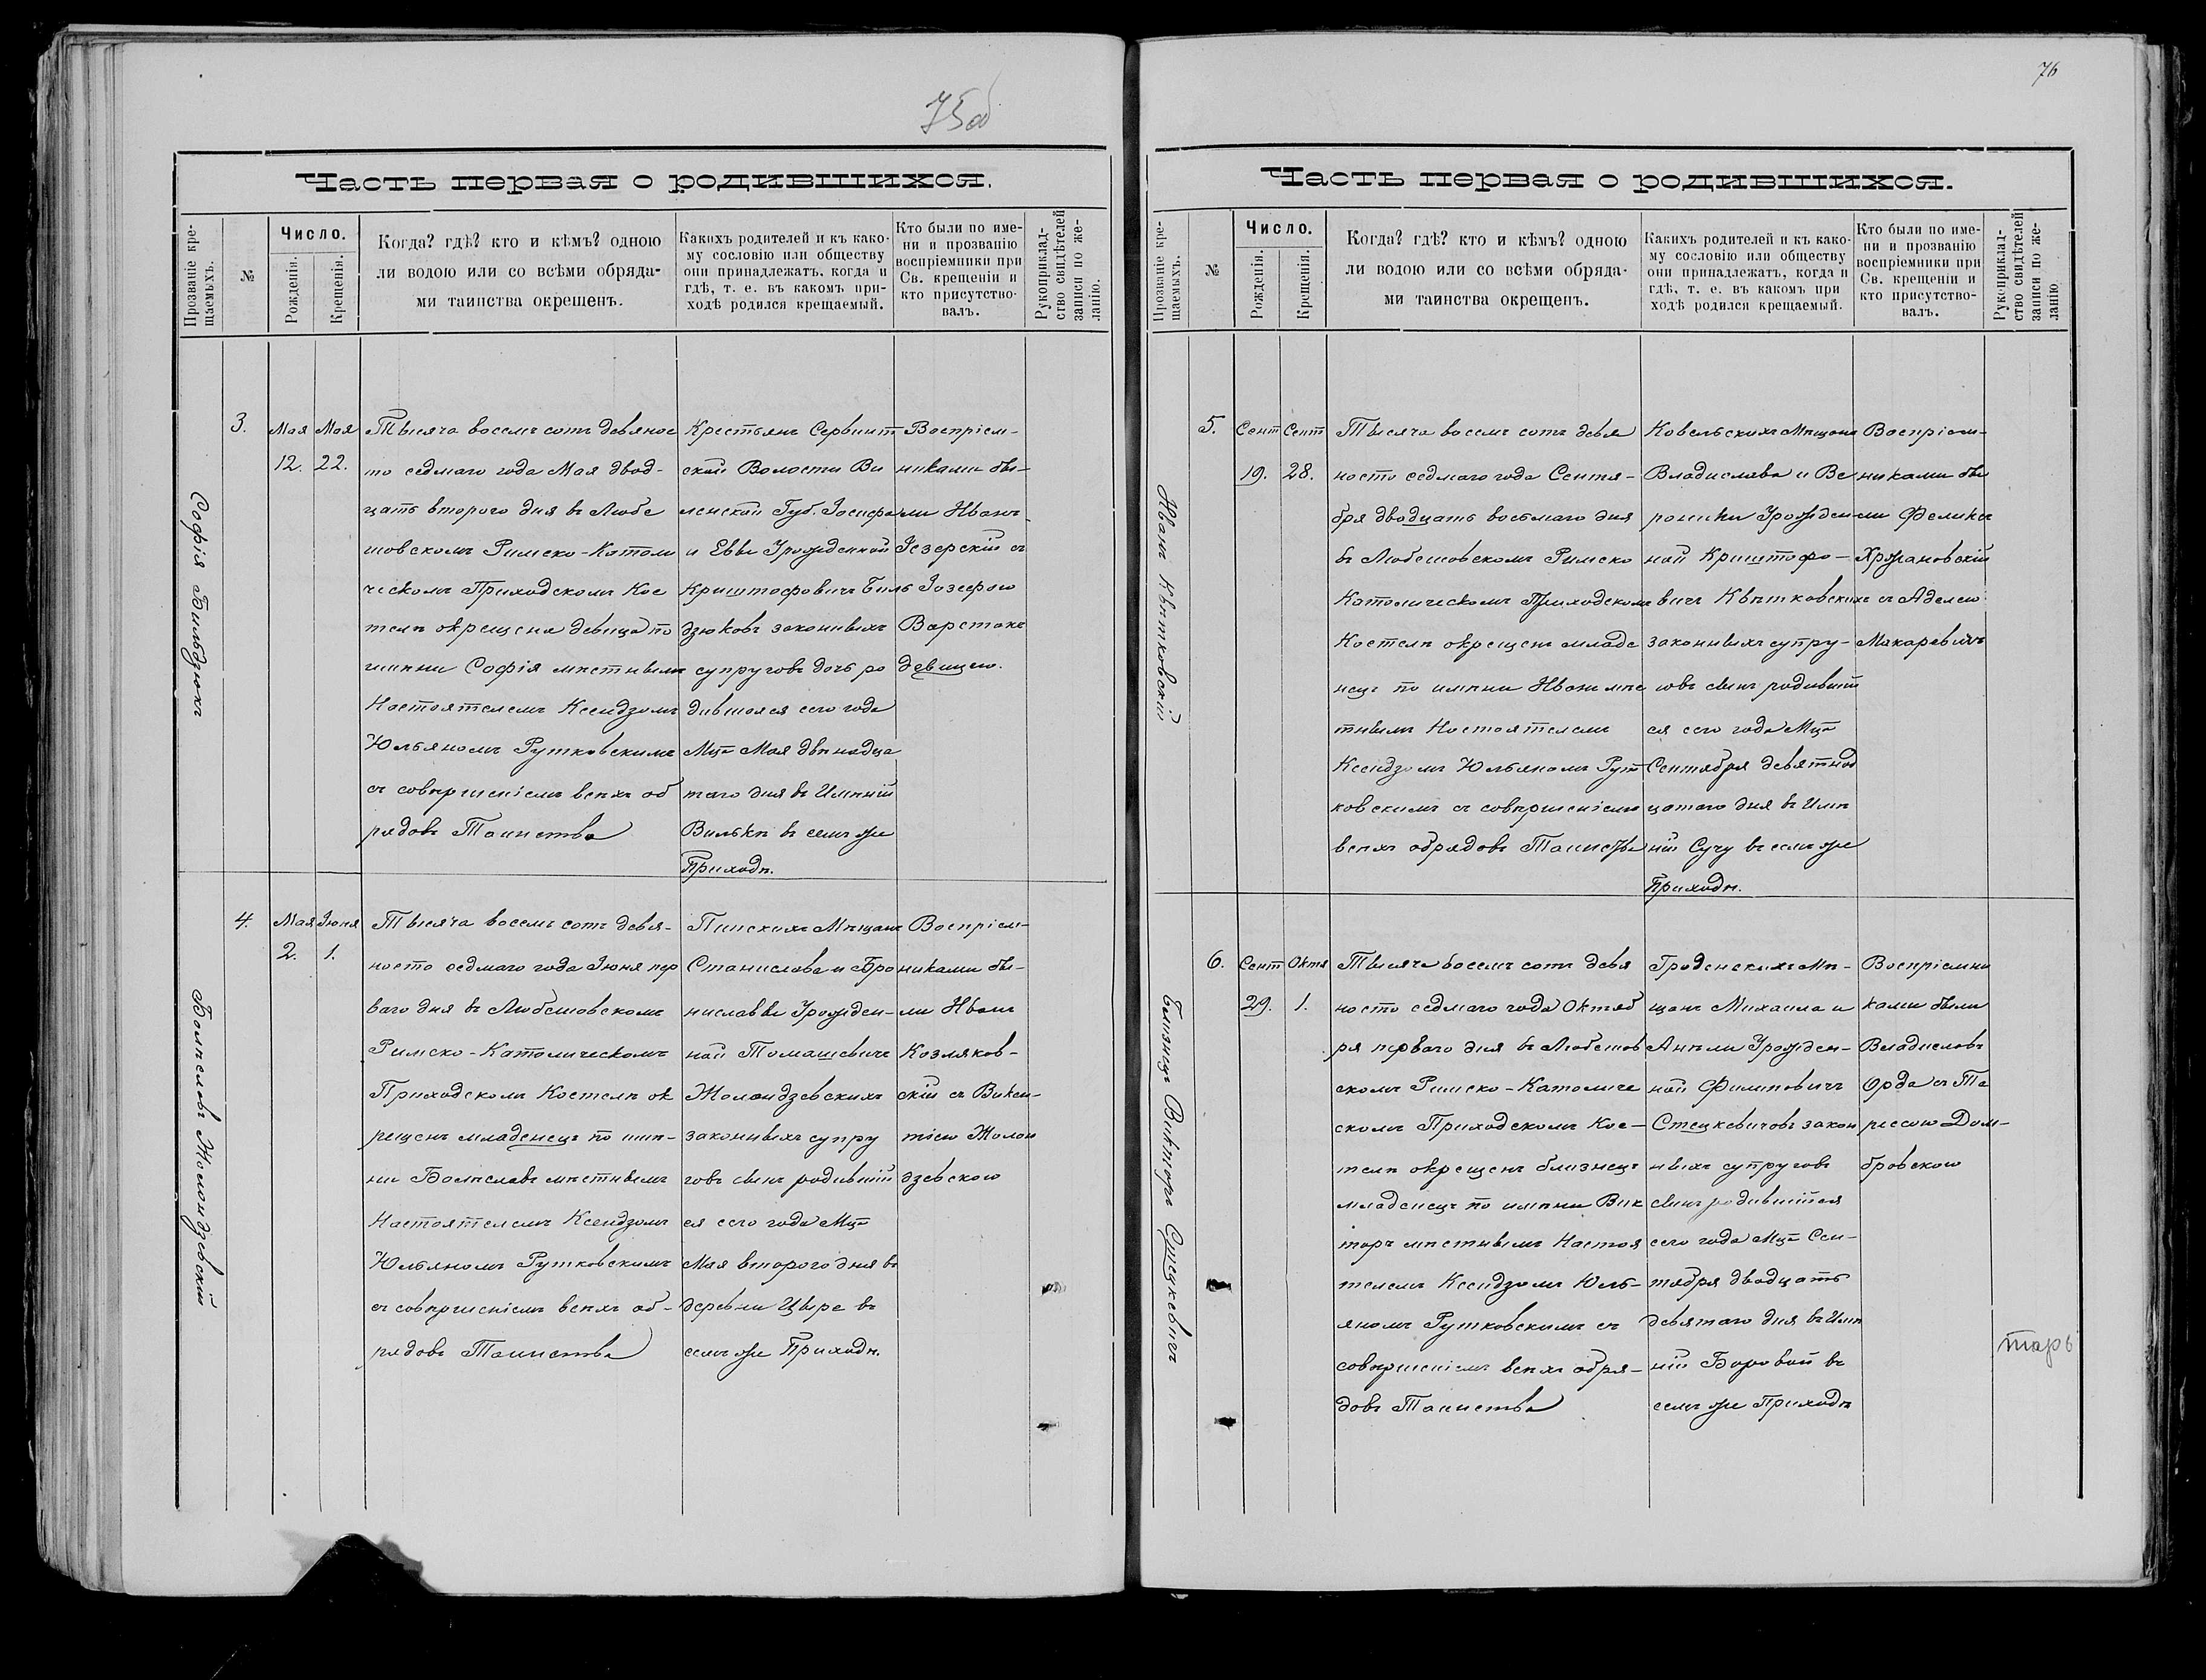 75об
Часть первая о родившихся.
Прозваніе кре-
щаемыхъ.
№
Число.
Рожденія.
Крещенія.
Когда? гдѣ? кто и кѣмъ? одною
ли водою или со всѣми обряда-
ми таинства окрещенъ.
Какихъ родителей и къ како-
му сословію или обществу
они принадлежатъ, когда и
гдѣ, т. е. въ какомъ при-
ходѣ родился крещаемый.
Кто были по име-
ни и прозванію
воспріемники при
Св. крещеніи и
кто присутство-
валъ.
Рукоприклад-
ство свидѣтелей
записи по же-
ланію.
Софія Бильдзюкъ
3.
Мая
12.
Мая
22.
Тысяча восемь сотъ девяно
то седмаго года Мая двад-
цать второго дня въ Любе
шовскомъ Римско-Католи
ческомъ Приходскомъ Кос
телѣ окрещена девица по
имени Софія мѣстнымъ
Настоятелемъ Ксендзомъ
Юльяномъ Рутковскимъ
съ совершеніемъ всѣхъ об
рядовъ Таинства
Крестьянъ
ской Волости Ви
ленской Губ. Іосифа
и Евы Урожденной
Криштофовичъ Биль
дзюковъ законныхъ
супруговъ дочь ро
дившаяся сего года
Мца Мая двѣнадца
таго дня въ Имѣніи
Вилькѣ въ семъ же
Приходѣ.
Воспріем-
никами бы-
ли Иванъ
Іезерскій съ
Іозефою
Варстакъ
девицею.
Болеславъ Жолондзевскій
4.
Мая
2.
Іюня
1.
Тысяча восемь сотъ девя-
носто седмаго года Іюня пер
ваго дня въ Любешовскомъ
Римско-Католическомъ
Приходскомъ Костелѣ ок
рещенъ младенецъ по име-
ни Болеславъ мѣстнымъ
Настоятелемъ Ксендзомъ
Юльяномъ Рутковскимъ
съ совершеніемъ всѣхъ об-
рядовъ Таинства
Пинскихъ Мѣщанъ
Станислава и Бро
ниславы Урожден-
ной Томашевичъ
Жолондзевскихъ
законныхъ супру
говъ сынъ родившій
ся сего года Мца
Мая второго дня въ
деревни Цыре въ
семъ же Приходѣ.
Воспріем-
никами бы-
ли Иванъ
Козляков-
скій съ Викен-
тіею Жолон
дзевскою
76
Часть первая о родившихся.
Прозваніе кре-
щаемыхъ.
№
Число.
Рожденія.
Крещенія.
Когда? гдѣ? кто и кѣмъ? одною
ли водою или со всѣми обряда-
ми таинства окрещенъ.
Какихъ родителей и къ како-
му сословію или обществу
они принадлежатъ, когда и
гдѣ, т. е. въ какомъ при
ходѣ родился крещаемый.
Кто были по име-
ни и прозванію
воспріемники при
Св. крещеніи и
кто присутство-
валъ.
Рукоприклад-
ство свидѣтелей
записи по же-
ланію
Иванъ Квѣтковскій
5.
Сент
19.
Сент
28.
Тысяча восемь сотъ девя
носто седмаго года Сентя-
бря двадцать восьмаго дня
въ Любешовскомъ Римско
Католическомъ Приходскомъ
Костелѣ окрещенъ младе
нецъ по имени Иванъ мѣс
тнымъ Настоятелемъ
Ксендзомъ Юльяномъ Рут
ковскимъ съ совершеніемъ
всѣхъ обрядовъ Таинства
Ковельскихъ Мѣщанъ
Владислава и Ве
роники Урожден
ной Криштофо-
вичъ Квѣтковскихъ
законныхъ супру-
говъ сынъ родивший
ся сего года Мца
Сентября девятнад
цатаго дня въ Имѣ
ніи Сучу въ семъ же
Приходѣ.
Воспріем-
никами бы
ли Феликсъ
Хржановскій
съ Аделею
Макаревичъ
Близнецъ Викторъ Стецкевичъ
6.
Сент
29.
Октя
1.
Тысяча восемь сотъ девя
носто седмаго года Октяб
ря перваго дня въ Любешов
скомъ Римско-Католиче
скомъ Приходскомъ Кос-
телѣ окрещенъ близнецъ
младенецъ по имени Вик
торъ мѣстнымъ Настоя
телемъ Ксендзомъ Юль-
яномъ Рутковскимъ съ
совершеніемъ всѣхъ обря-
довъ Таинства
Гродненскихъ Мѣ-
щанъ Михаила и
Анели Урожден-
ной Филиповичъ
Стецкевичовъ закон
ныхъ супруговъ
сынъ родившійся
сего года Мца Сен-
тября двадцать
девятаго дня въ Имѣ
ніи Боровой въ
семъ же Приходѣ
Воспріемни
ками были
Владиславъ
Орда съ Те
ресою Дом-
бровскою
тарь